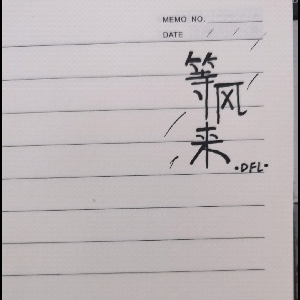 MEMO NO.
DATE / /
等
风
来
·DFL·